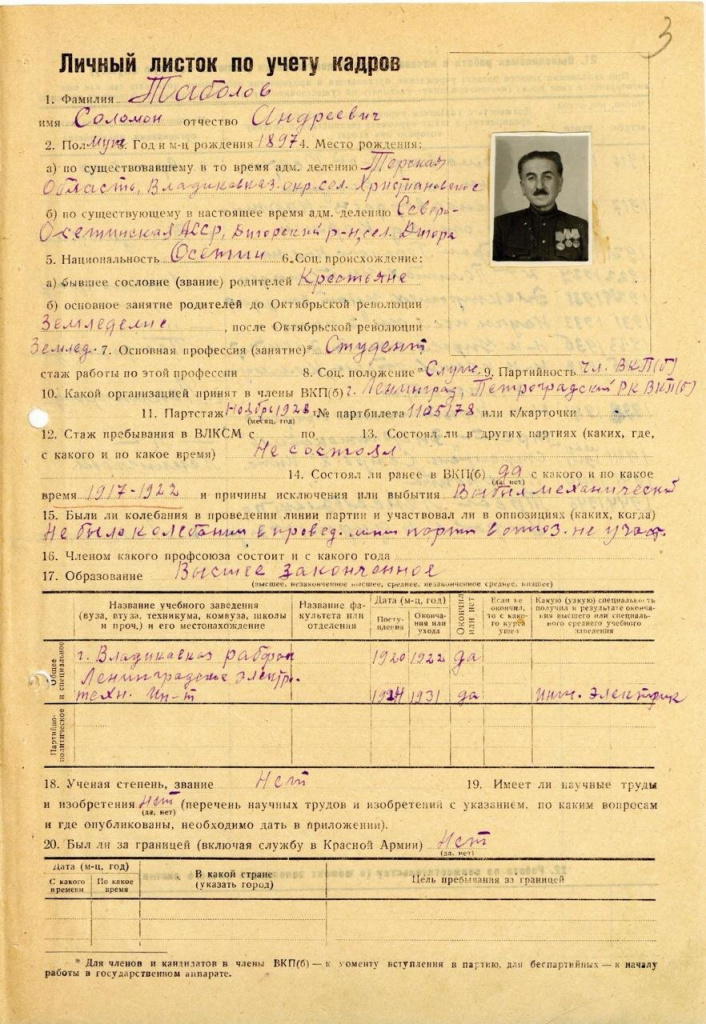 3
Личный листок по учету кадров
1. Фамилия Таболов
имя Соломон отчество Андреевич
2. Пол Муж. Год и м-ц рождения 1897 4. Место рождения:
а) по существовавшему в то время адм. делению Терская
Область, Владикавказ. окр. сел. Христиановское
б) по существующему в настоящее время адм. делению Северо-
Осетинская АССР, Дигорский р-н, сел. Дигора
5. Национальность Осетин 6. Соц. происхождение:
а) бывшее сословие (звание) родителей Крестьяне
б) основное занятие родителей до Октябрьской революции
Земледелие, после Октябрьской революции
Землед. 7. Основная профессия (занятие)* Студент
стаж работы по этой профессии 8. Соц. положение* Служ. 9. Партийность Чл. ВКП(б)
10. Какой организацией принят в члены ВКП(б) г. Ленинград, Петроградский РК ВКП(б)
11. Партстаж Ноябрь 1928 № партбилета 1105178 или к/карточки
(месяц, год)
12. Стаж пребывания в ВЛКСМ с по 13. Состоял ли в других партиях (каких, где,
с какого и по какое время) Не состоял
14. Состоял ли ранее в ВКП(б) да с какого и по какое
(да, нет)
время 1917-1922 и причины исключения или выбытия Выбыл механически
15. Были ли колебания в проведении линии партии и участвовал ли в оппозициях (каких, когда)
Не было колебаний в провед. линии партии в оппоз. не участ.
16. Членом какого профсоюза состоит и с какого года
17. Образование Высшее законченное
(высшее, незаконченное высшее, среднее, незаконченное среднее, низшее)
Название учебного заведения (вуза, втуза, техникума, комвуза, школы и проч.) и его местонахождение
Название факультета или отделения
Дата (м-ц, год)
Поступления
Окончания или ухода
Окончил или нет
Если не окончил, то с какого курса ушел
Какую (узкую) специальность получил в результате окончания высшего или специального среднего учебного заведения
Общее и специальное
г. Владикавказ рабфак 1920 1922 да
Ленинградские электро-
техн. Ин-т 1924 1931 да Инж. электрик
Партийно-политическое
18. Ученая степень, звание Нет 19. Имеет ли научные труды
и изобретения Нет (перечень научных трудов и изобретений с указанием, по каким вопросам
(да, нет)
и где опубликованы, необходимо дать в приложении).
20. Был ли за границей (включая службу в Красной Армии) Нет
(да, нет)
Дата (м-ц, год)
С какого времени
По какое время
В какой стране (указать город)
Цель пребывания за границей
* Для членов и кандидатов в члены ВКП(б) — к моменту вступления в партию, для беспартийных — к началу
работы в государственном аппарате.